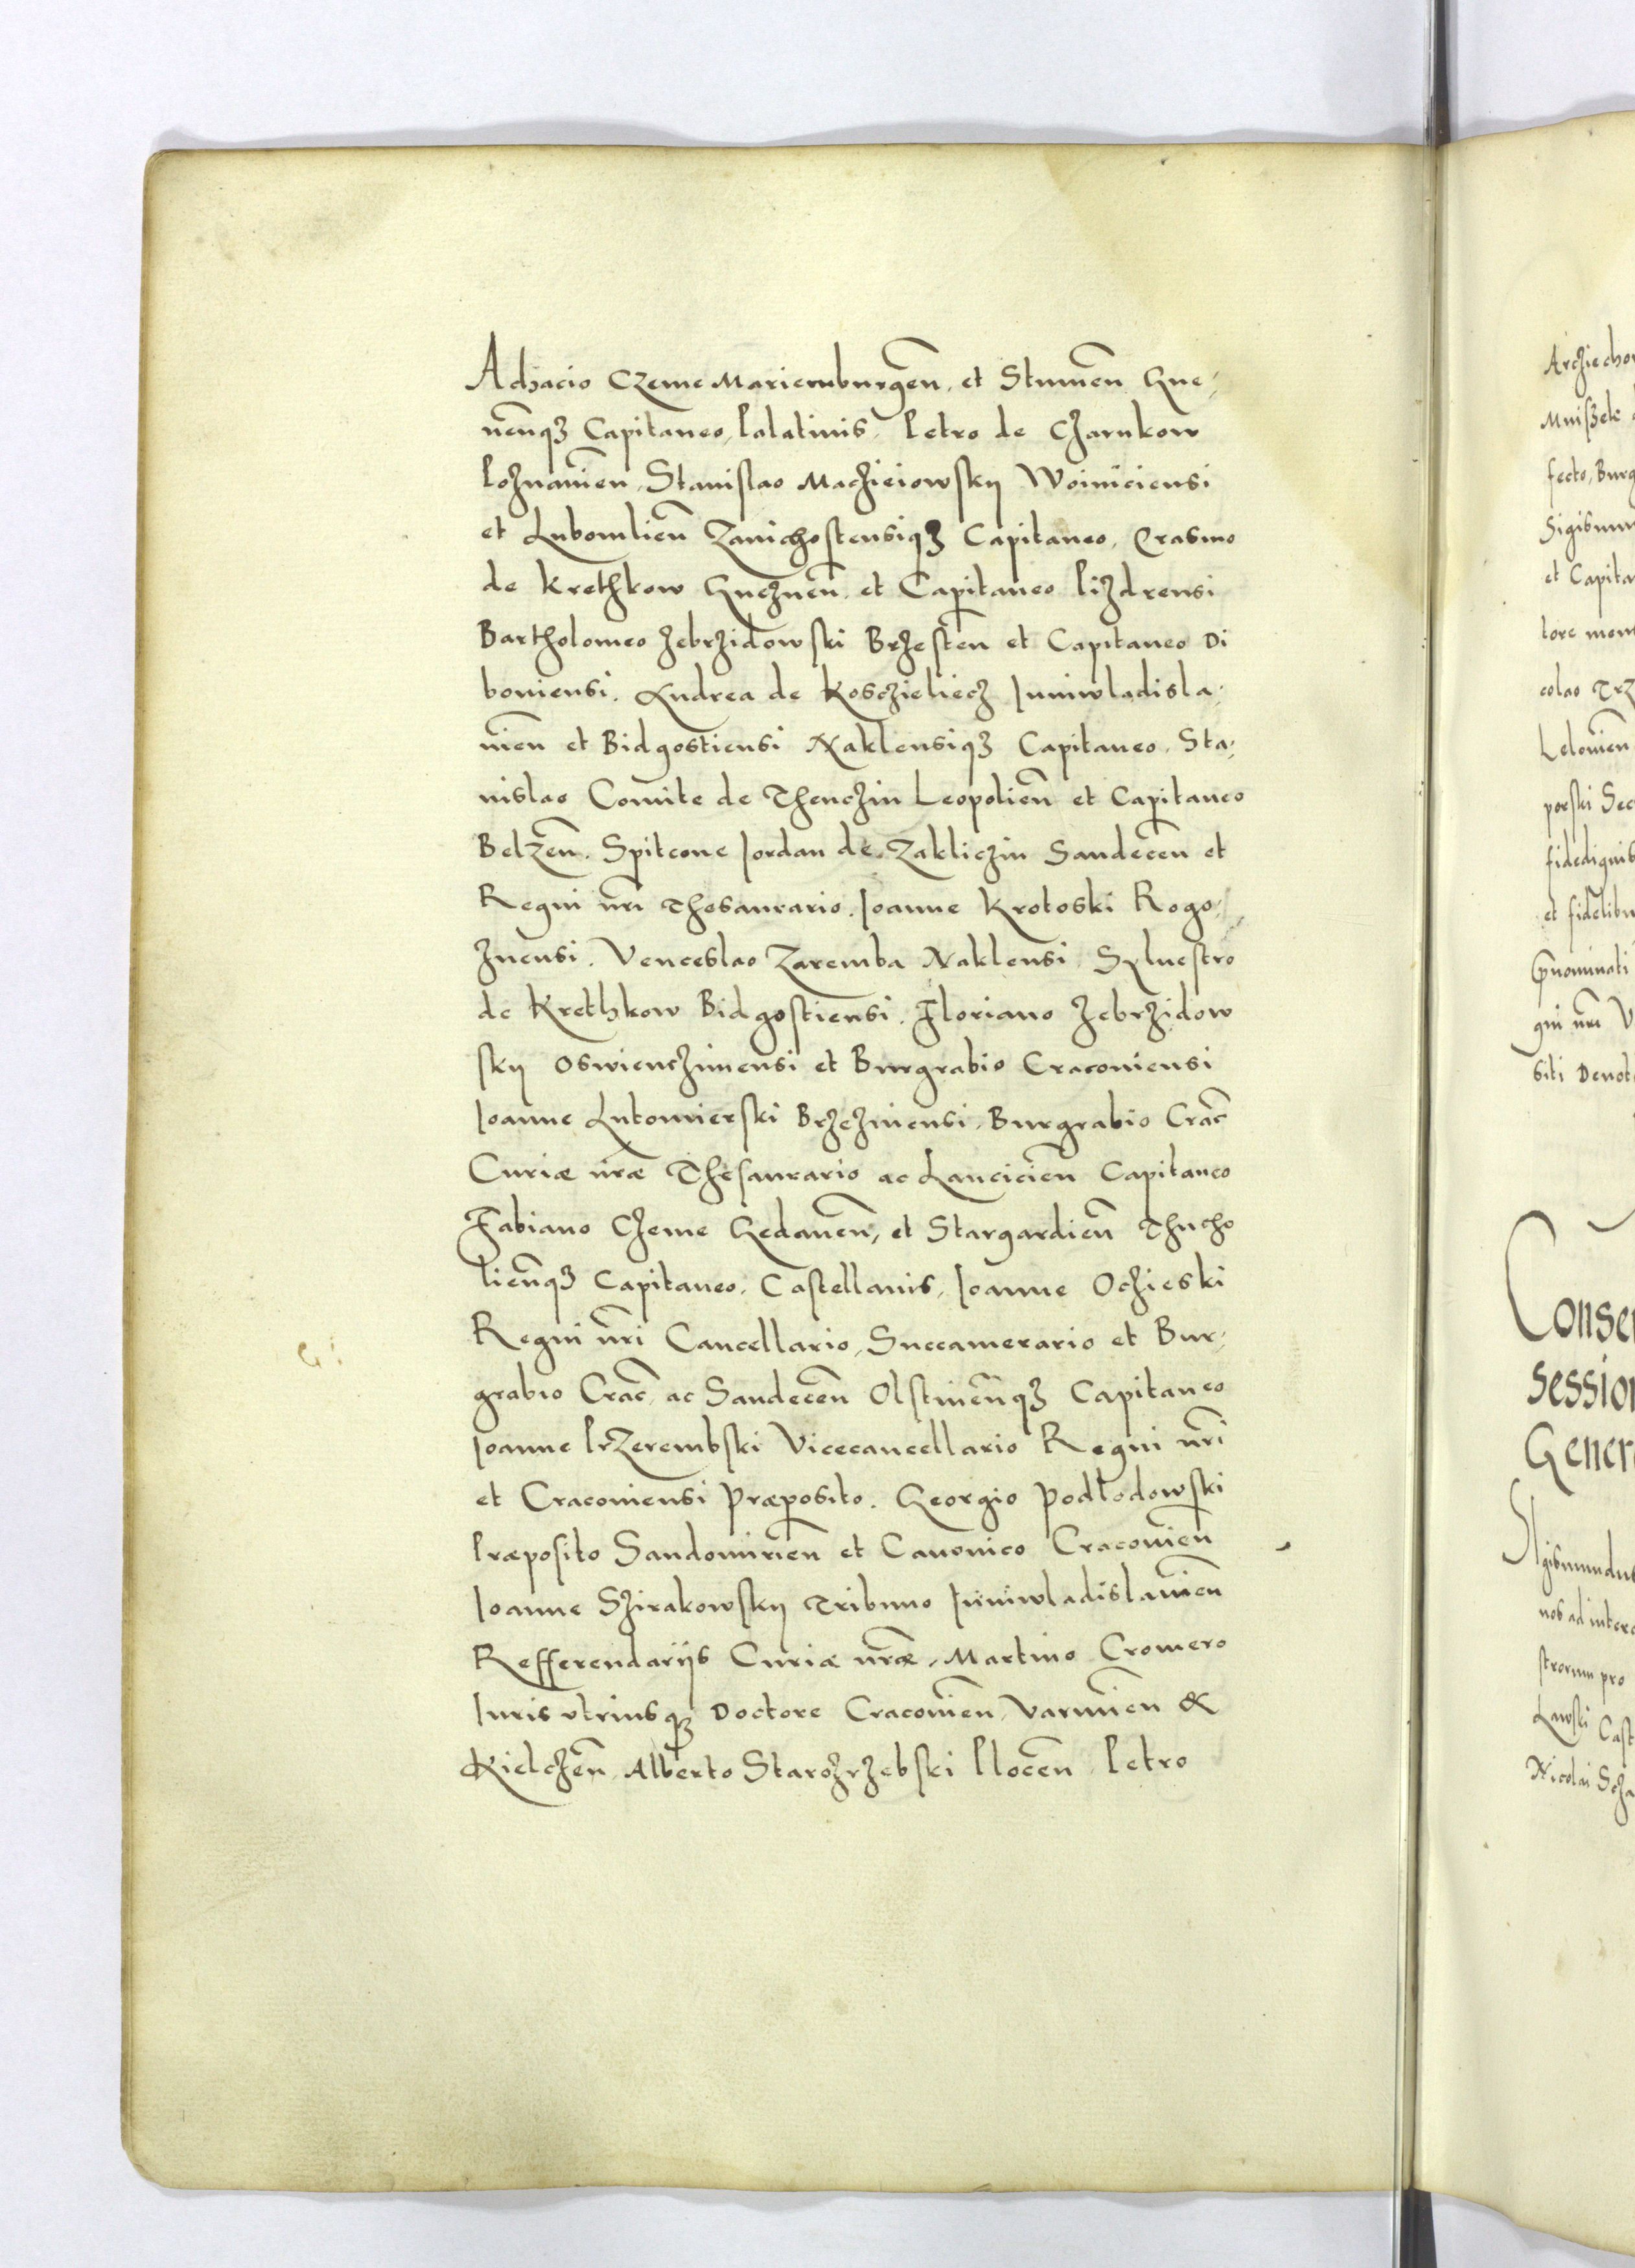 Achacio Czeme Mariemburgeñ, et Stumeñ Gne-
ueñq3 Capitaneo, Palatinis, Petro de Czarnkow
Poznanieñ, Stanislao Maczieiowsky Woiniciensi
et Lubomlieñ Zauichostensiq3 Capitaneo, Erasmo
de Krethkow Gnezneñ et Capitaneo Pizdrensi
Bartholomeo Zebrzidowski Brzesteñ et Capitaneo Di
boniensi. Andrea de Kosczieliecz Juniwladisla-
uieñ et Bidgostiensi Naklensiq3 Capitaneo. Sta-
nislao Comite de Thenczin Leopolieñ et Capitaneo
Belzeñ. Spitcone Jordan de Zakliczin Sandeceñ et
Regni nr̃i Thesaurario. Joanne Krotoski Rogo-
znensi. Venceslao Zaremba Naklensi. Syluestro
de Krethkow Bidgostiensi. Floriano Zebrzidow
sky Oswienczimensi et Burgrabio Cracouiensi
Joanne Lutomierski Brzezinensi, Burgrabio Crac̃
Curiæ nr̃æ Thesaurario ac Lancicieñ Capitaneo
Fabiano Czeme Gedaneñ, et Stargardieñ Thucho
lieñq3 Capitaneo, Castellanis, Joanne Oczieski
Regni nr̃i Cancellario, Succamerario et Bur-
grabio Crac̃, ac Sandeceñ Olstineñq3 Capitaneo
Joanne Przerembski Vicecancellario Regni nr̃i
et Cracouiensi Præposito. Georgio Podlodowski
Præposito Sandomirieñ et Canonico Cracouieñ
Joanne Szirakowsky Tribuno Juniwladislauieñ
Refferendarijs Curiæ nr̃æ, Martino Cromero
Juris vtriusq3 Doctore Cracouieñ, Varmieñ &
Kielczeñ, Alberto Starozrzebski Ploceñ, Petro
Arcziecho
Mniszek
fecto, Burg
Sigismun
et Capita
tore mon
colao Trz
Lelouieñ
porski Sec
fidedignis
et fidelibu
gni nr̃i V
siti Deuot
Conse
session
Gener
Sigismundus
nos ad inter
strorum pro
Lawski Cast
Nicolai Scza